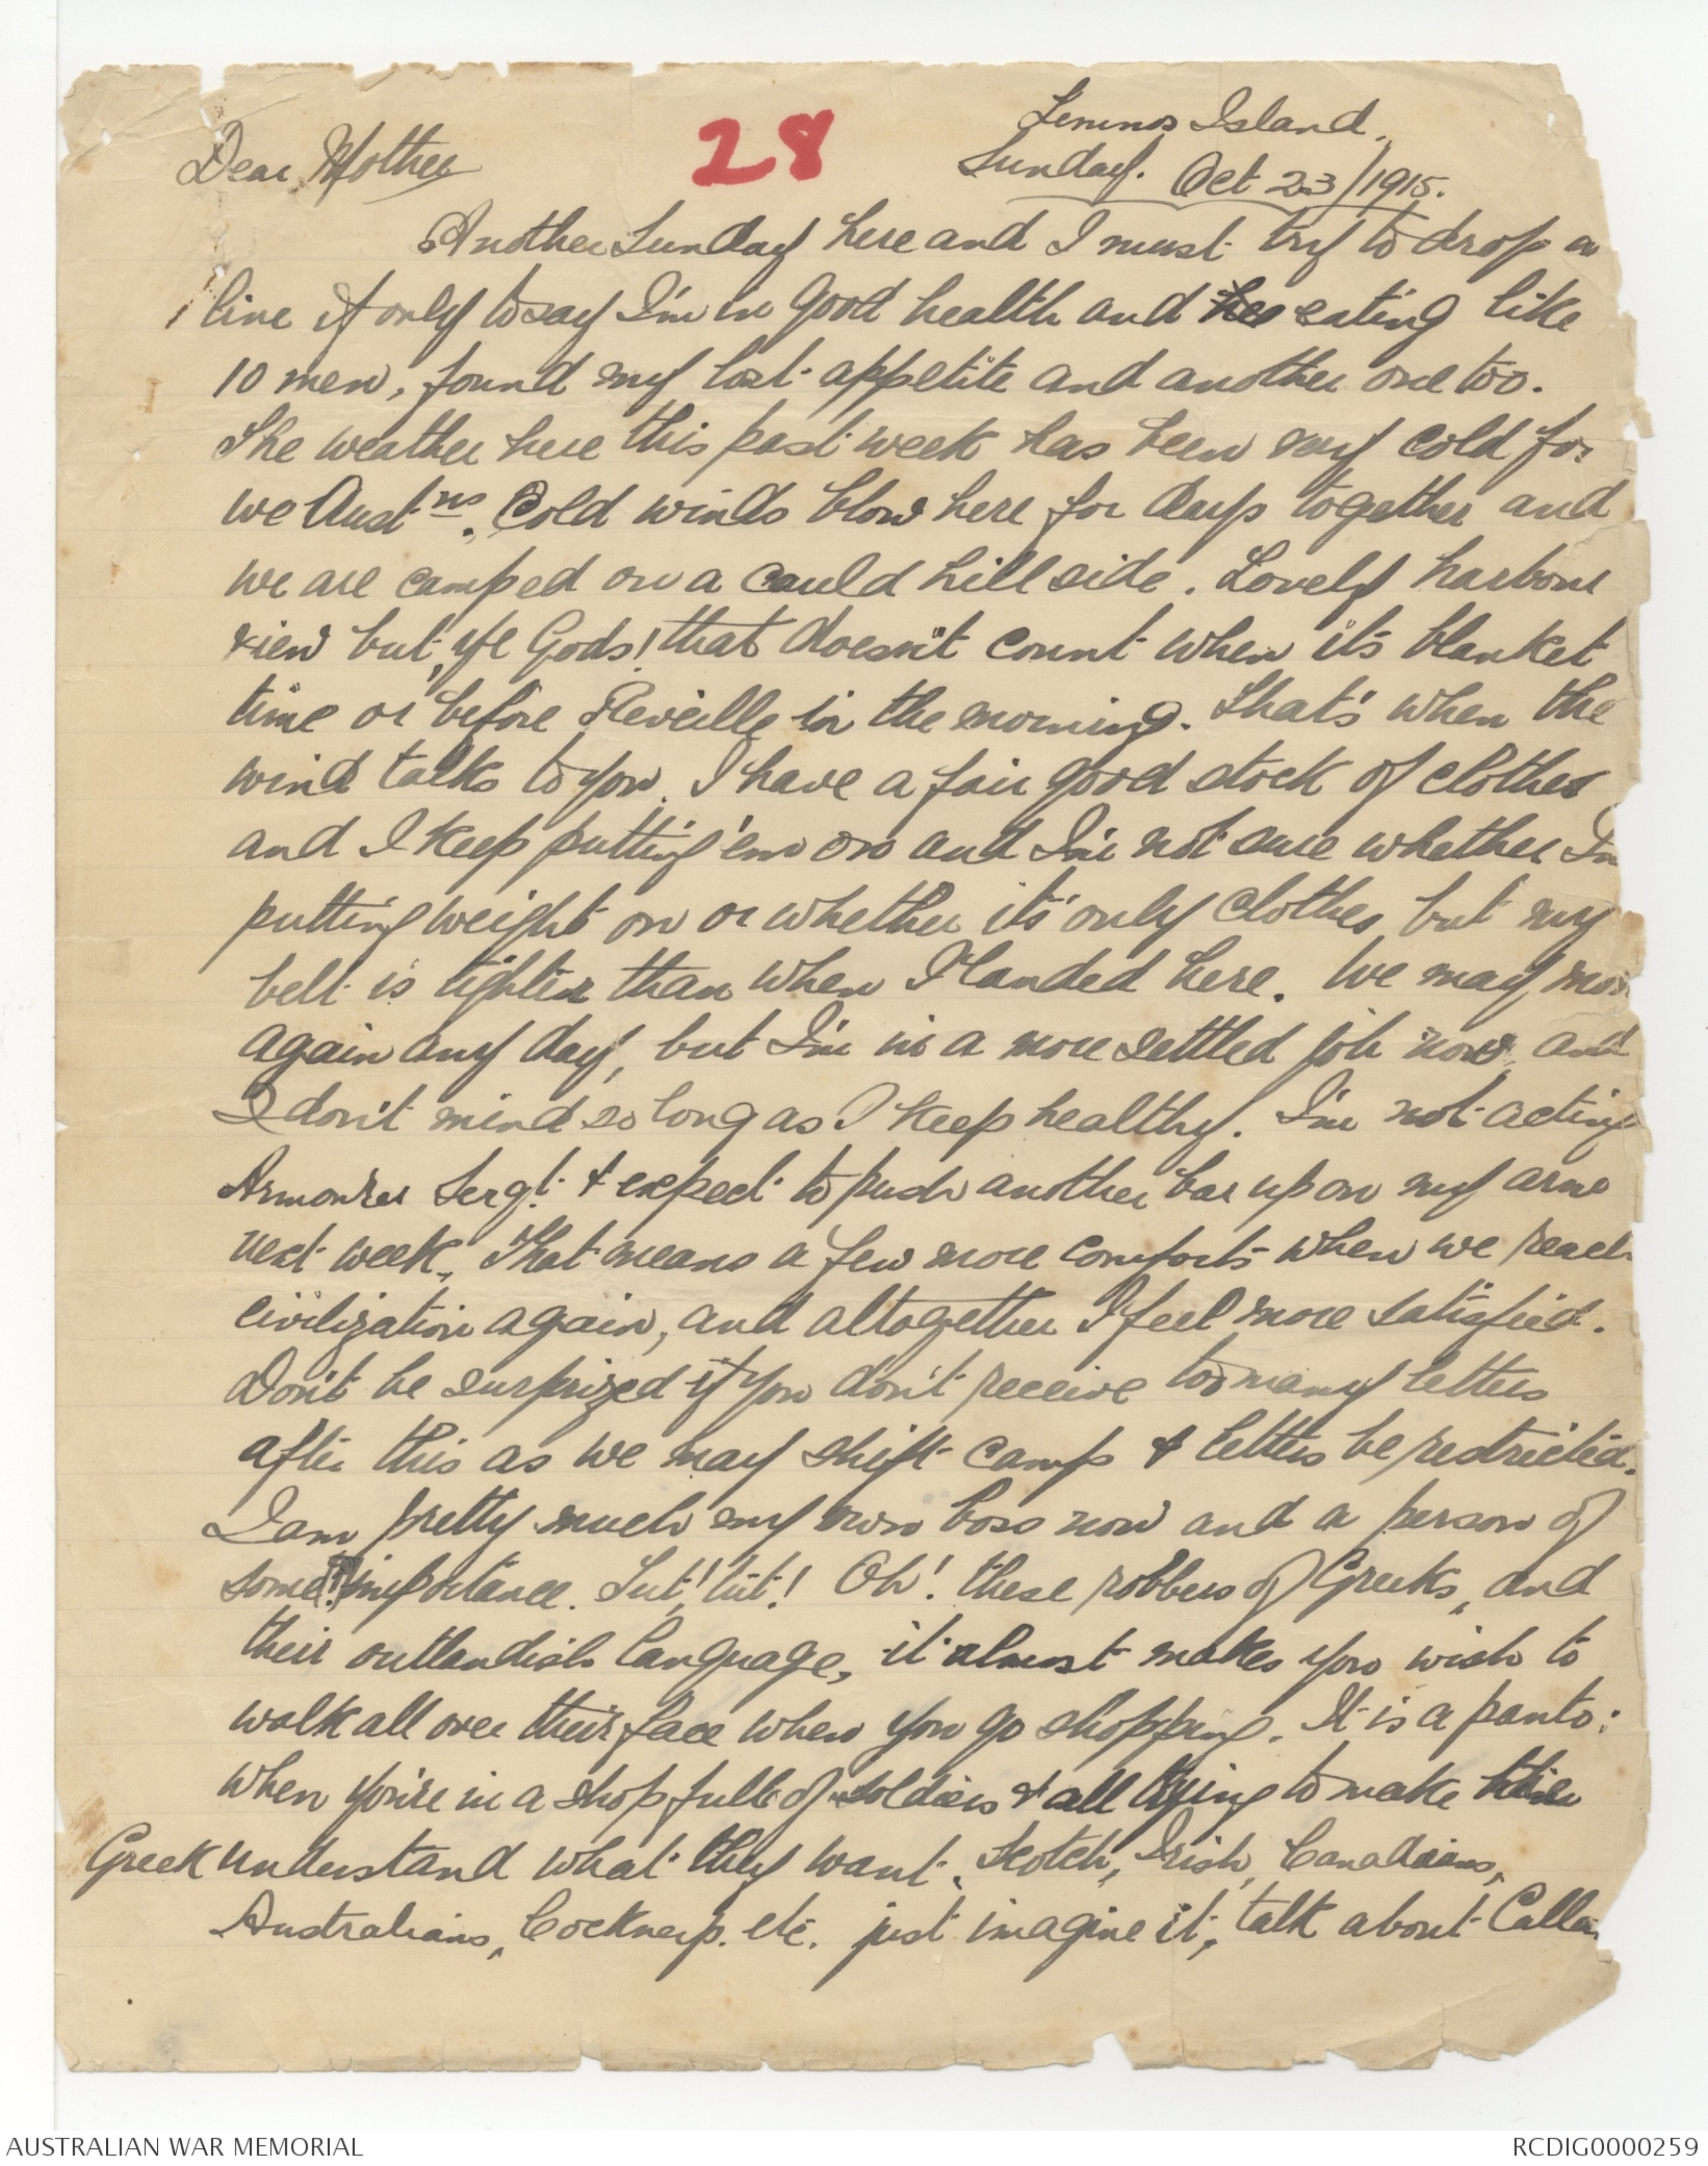 28
Lemnos Island.
Sunday. Oct 23/1915.
Dear Mother
Another Sunday here and I must try to drop a
line if only to say I'm in good health and eating like
10 men, found my lost appetite and another one too.
The weather here this past week has been very cold for
we Austns. Cold winds blow here for days together and
we are camped on a cauld hill side. Lovely harbour
view but, ye Gods! that doesn't count when it's blanket
time or before Reveille in the morning. That's when the
wind talks to you. I have a fair good stock of clothes
and I keep putting 'em on and I'm not sure whether I'm
putting weight on or whether it's only clothes, but my
belt is tighter than when I landed here. We may
again any day, but I'm in a more settled job now, and
I don't mind so long as I keep healthy. I'm not acting
Armourer Sergt. & expect to push another bar up on my arm
next week. That means a few more comforts when we reach
civilization again, and altogether I feel more satisfied.
Don't be surprized if you don't receive too many letters
after this as we may shift camp & letters be restricted.
I am pretty much my own boss now and a person of
some(?) importance. Tut! tut! Oh! these robbers of Greeks, and
their outlandish language, it almost makes you wish to
walk all over their face when you go shopping. It is a panto:
when you're in a shop full of soldiers & all trying to make the
Greek understand what they want. Scotch, Irish, Canadians,
Australians, Cockneys. etc. just imagine it, talk about
AUSTRALIAN WAR MEMORIAL
RCDIG0000259